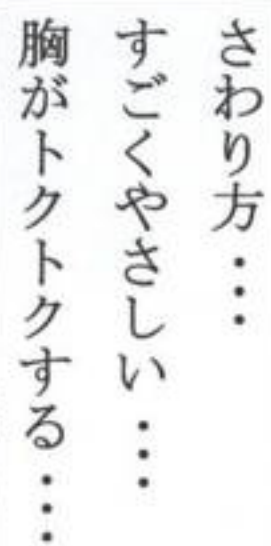 さわり方・・・
すごくやさしい・・・
胸がトクトクする・・・